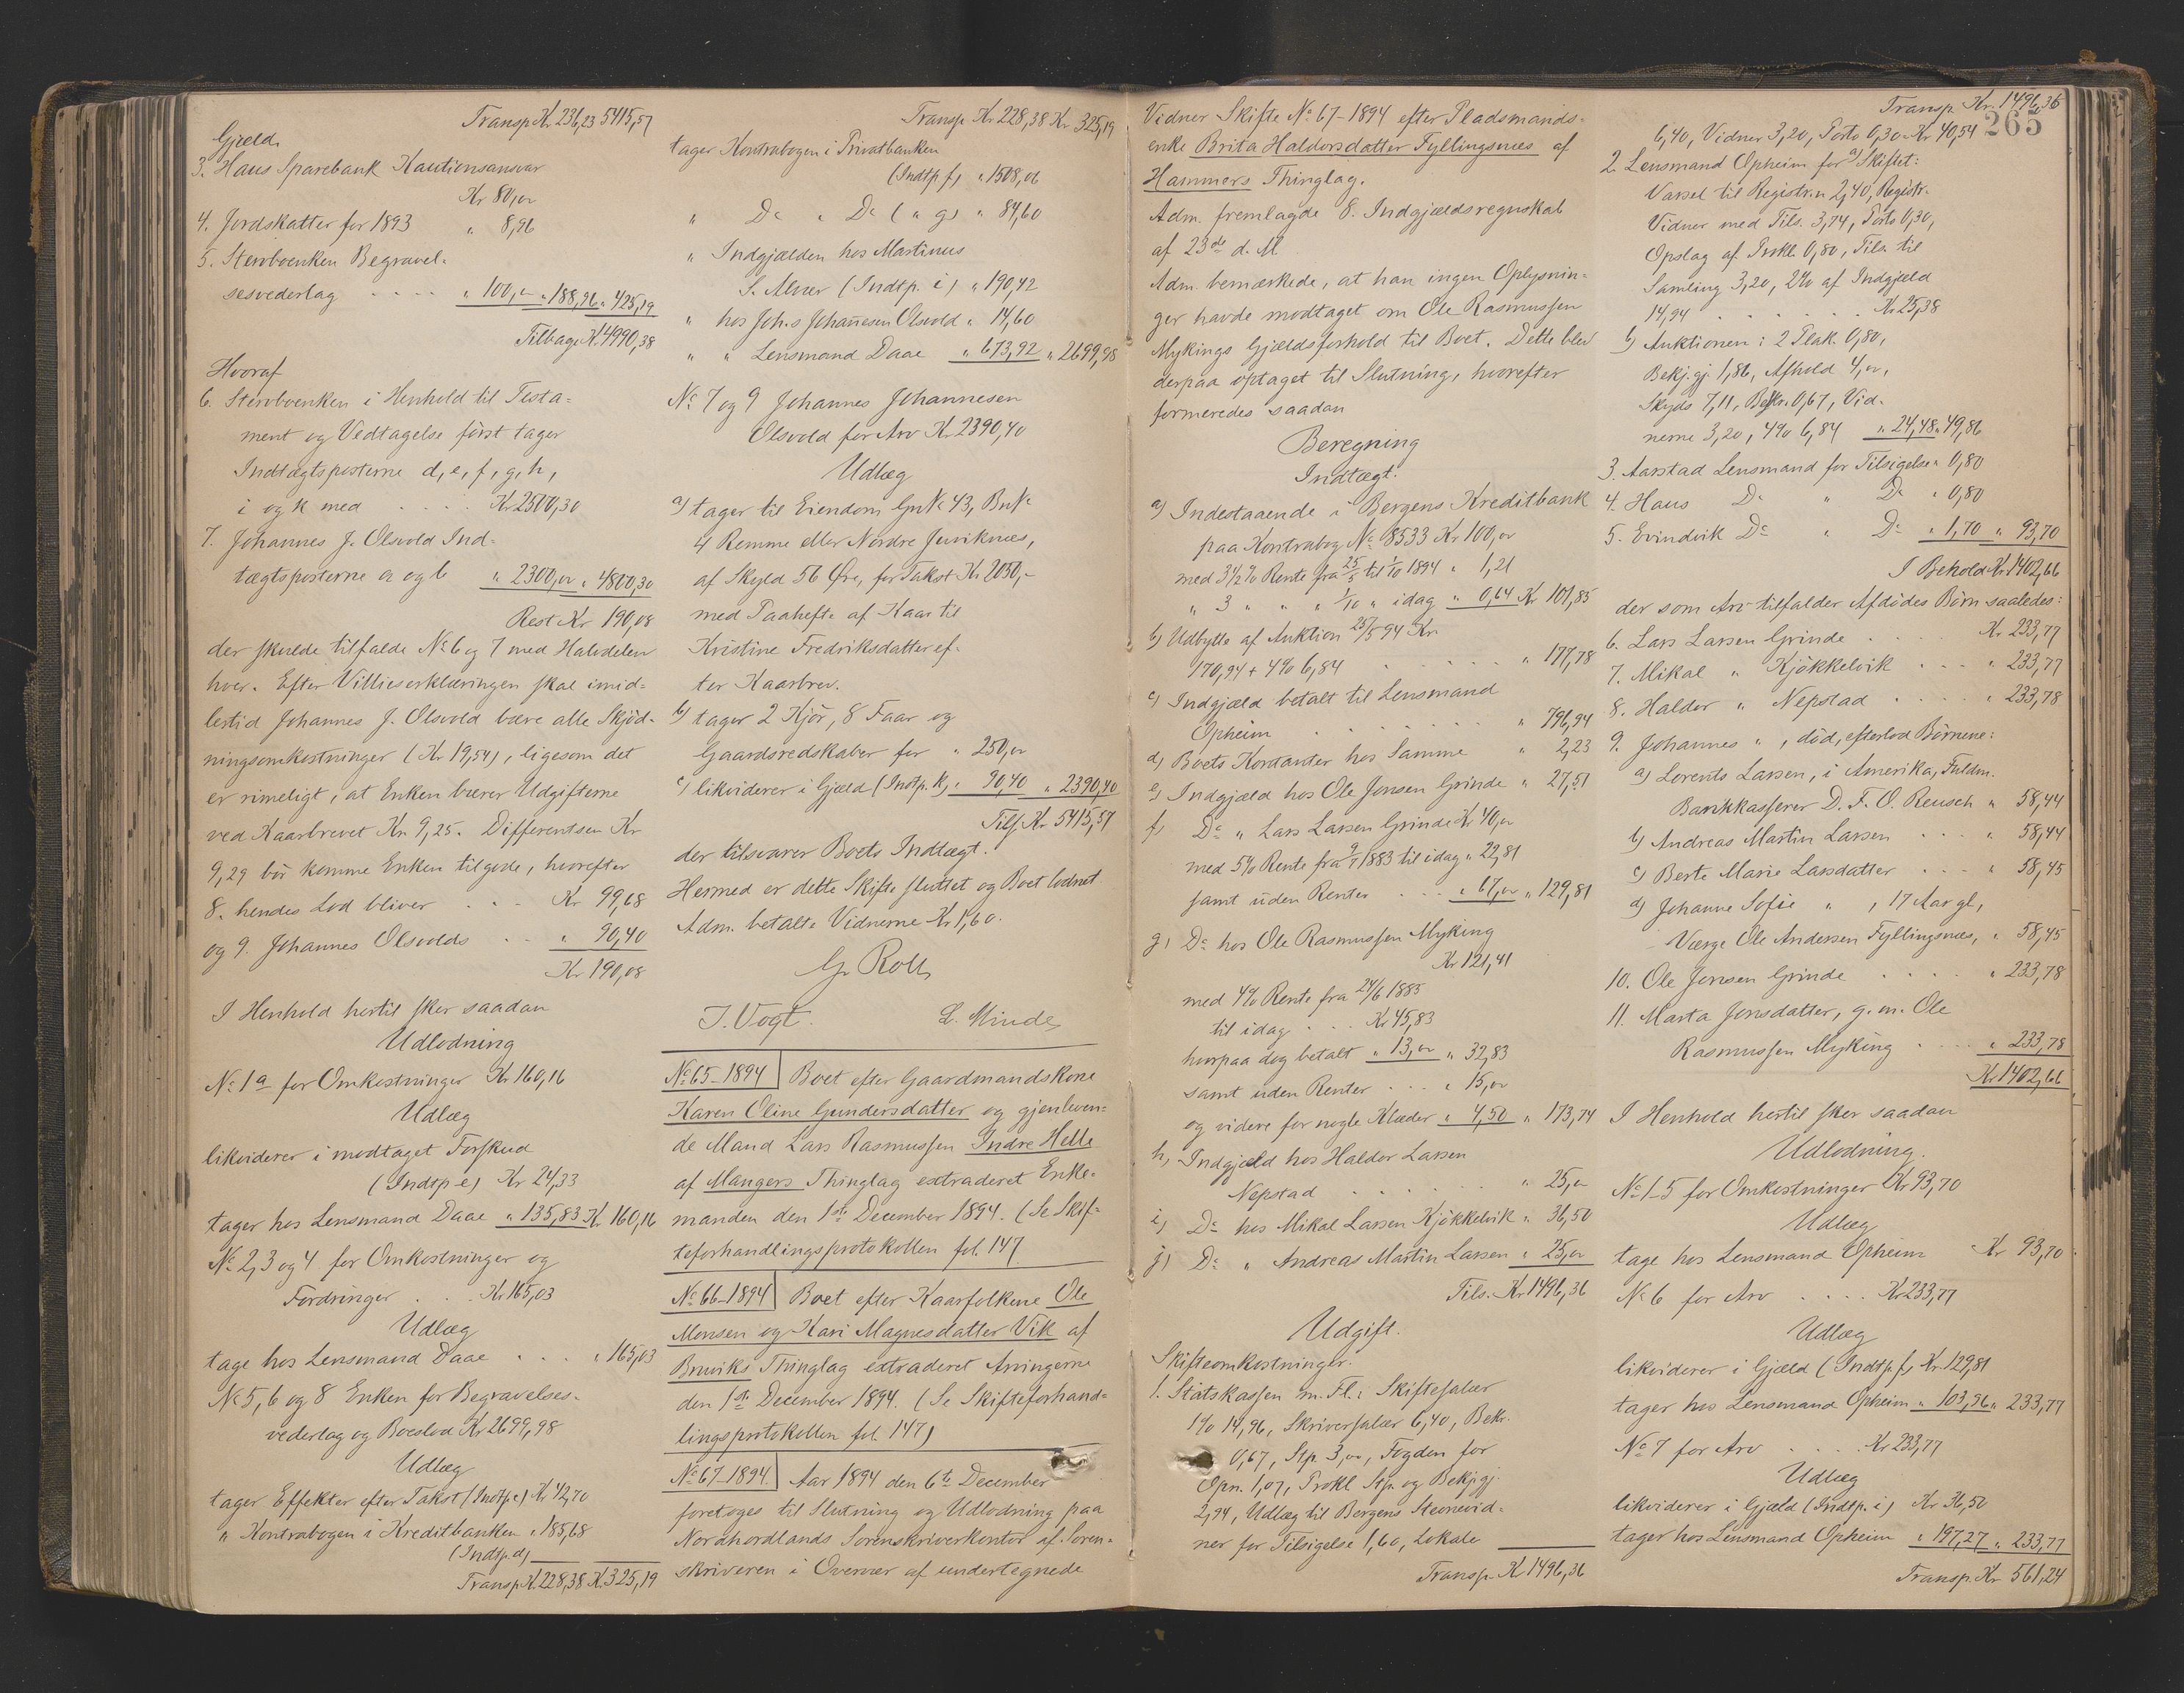 Transp. Kr 236,23 5415,57
Gjæld.
3. Haus Sparebank Kautionsansvar
Kr 80,00
4. Jordskatter for 1893 " 8,96
5. Stervboenken Begravel-
sesvederlag .... " 100,00 " 188,96 " 425,19
Tilbage Kr 4990,38
Hvoraf
6. Stervboenken i Henhold til Testa-
ment og Vedtagelse først tager
Indtægtsposterne d, e, f, g, h,
i og k med .... Kr 2500,30
7. Johannes J. Olsvold Ind-
tægtsposterne a og b " 2300,00 " 4800,30
Rest Kr 190,08
der skulde tilfalde No 6 og 7 med Halvdelen
hver. Efter Villieserklæringen skal imid-
lertid Johannes J. Olsvold bære alle Skjød-
ningsomkostninger (Kr 19,54), ligesom det
er rimeligt, at Enken bærer Udgifterne
ved Kaarbrevet Kr. 9,25. Differentsen Kr
9,29 bør komme Enken tilgode, hvorefter
8. hendes Lod bliver ... Kr 99,68
og 9. Johannes Olsvolds .. " 90,40
Kr 190,08
I Henhold hertil sker saadan
Udlodning
No 1a for Omkostninger Kr 160,16
Udlæg
likviderer i modtaget Forskud
(Indtp e) Kr 24,33
tager hos Lensmand Daae " 135,83 Kr. 160,16
No 2, 3 og 4 for Omkostninger og
Fordringer ... Kr 165,03
Udlæg
tage hos Lensmand Daae ... " 165,03
No 5, 6 og 8 Enken for Begravelses-
vederlag og Boeslod Kr 2699,98
Udlæg
tager Effekter efter Takst (Indtp c) Kr 42,70
" Kontrabogen i Kreditbanken " 185,68
(Indtp. d)
Transp Kr. 228,38 Kr. 325,19
Transp Kr 228,38 Kr. 325,19
tager Kontrabogen i Privatbanken
(Indtp. f) " 1508,06
" Do " Do (" g) " 84,60
" Indgjælden hos Martinus
S. Alver (Indtp. i) " 190,42
" hos Johs Johannesen Olsvold " 14,60
" " Lensmand Daae " 673,92 " 2699,98
No 7 og 9 Johannes Johannesen
Olsvold for Arv Kr 2390,40
Udlæg
a) tager til Eiendom GnNo 43, BnNo
4 Remme eller Nordre Juviknæs,
af Skyld 56 Øre, for Takst Kr 2050,-
med Paahefte af Kaar til
Kristine Fredriksdatter ef-
ter Kaarbrev.
b) tager 2 Kjør, 8 Faar og
Gaardsredskaber for " 250,00
c) likviderer i Gjæld (Indtp. k) " 90,40 " 2390,40
Tils. Kr 5415,57
der tilsvarer Boets Indtægt.
Hermed er dette Skifte sluttet og Boet lodnet
Adm. betalte Vidnerne Kr 1,60.
G. Roll
J. Vogt. L. Minde
No 65-1894 Boet efter Gaardmandskone
Karen Oline Gundersdatter og gjenleven-
de Mand Lars Rasmussen Indre Helle
af Mangers Thinglag extraderet Enke-
manden den 1ste December 1894. (Se Skif-
teforhandlingsprotokollen fol. 147
No 66-1894 Boet efter Kaarfolkene Ole
Monsen og Kari Magnesdatter Vik af
Bruviks Thinglag extraderet Arvingerne
den 1ste December 1894. (Se Skifteforhand-
lingsprotokollen fol. 147)
No 67-1894. Aar 1894 den 6te December
foretoges til Slutning og Udlodning paa
Nordhordlands Sorenskriverkontor af Soren-
skriveren i Overvær af undertegnede
Vidner Skifte No 67-1894 efter Pladsmands-
enke Brita Haldorsdatter Fyllingsnæs af
Hammers Thinglag.
Adm. fremlagde 8. Indgjældsregnskab
af 23de d. M.
Adm. bemærkede, at han ingen Oplysnin-
ger havde modtaget om Ole Rasmussen
Mykings Gjældsforhold til Boet. Dette blev
derpaa optaget til Slutning, hvorefter
formeredes saadan
Beregning
Indtægt.
a) Indestaaende i Bergens Kreditbank
paa Kontrabog No 8533 Kr 100,00
med 3 1/2 % Rente fra 25/5 til 1/10 1894 " 1,21
" 3 " " " 1/10 " idag " 0,64 Kr 101,85
b) Udbytte af Auktion 25/5 94 Kr
170,94 + 4% 6,84 .... " 177,78
c) Indgjæld betalt til Lensmand
Opheim .... " 796,94
d) Boets Kontanter hos Samme " 2,23
e) Indgjæld hos Ole Jonsen Grinde " 27,51
f) Do " Lars Larsen Grinde Kr 40,00
med 5% Rente fra 9/7 1883 til idag " 22,81
samt uden Renter ... " 67,00 " 129,81
g) Do hos Ole Rasmussen Myking
Kr 121,41
med 4% Rente fra 24/6 1885
til idag ... Kr 45,83
hvorpaa dog betalt " 13,00 " 32,83
samt uden Renter ... " 15,00
og videre for nogle Klæder " 4,50 " 173,74
h) Indgjæld hos Haldor Larsen
Nepstad .... " 25,00
i) Do hos Mikal Larsen Kjøkkelvik " 36,50
j) Do " Andreas Martin Larsen " 25,00
Tils. Kr 1496,36
Udgift.
Skifteomkostninger.
1. Statskassen m. Fl.: Skiftesalær
1% 14,96, Skriversalær 6,40, Bekr.
0,67, Stp 3,00, Fogden for
Opn. 1,07, Prokl. Stp. og Bekjgj.
2,94, Udlæg til Bergens Stevnevid-
ner for Tilsigelse 1,60, Lokale
Transp. Kr 1496,36
Transp. Kr. 1496,36
265
6,40, Vidner 3,20, Porto 0,30 Kr 40,54
2. Lensmand Opheim for a) Skiftet:
Varsel til Registr.n 2,40, Registr.
Vidner med Tils. 3,74, Porto 0,30,
Opslag af Prokl. 0,80, Tils. til
Samling 3,20, 2% af Indgjæld
14,94 ..... Kr 25,38
b) Auktionen: 2 Plak. 0,80,
Bekj.gj. 1,86, Afhold 4,00,
Skyds 7,11, Beskr. 0,67, Vid-
nerne 3,20, 4% 6,84 " 24,48 " 49,86
3. Aarstad Lensmand for Tilsigelse " 0,80
4. Haus Do " Do " 0,80
5. Evindvik Do " Do " 1,70 " 93,70
I Behold Kr 1402,66
der som Arv tilfalder Afdødes Børn saaledes:
6. Lars Larsen Grinde .... Kr. 233,77
7. Mikal " Kjøkkelvik ... " 233,77
8. Haldor " Nepstad .... " 233,78
9. Johannes " , død, efterlod Børnene:
a) Lorents Larsen, i Amerika, Fuldm.
Bankkasserer D. F. O. Reusch " 58,44
b) Andreas Martin Larsen ... " 58,44
c) Berte Marie Larsdatter ... " 58,45
d) Johanne Sofie " , 17 Aar gl,
Værge Ole Andersen Fyllingsnæs, " 58,45
10. Ole Jonsen Grinde .... " 233,78
11. Marta Jonsdatter, g. m. Ole
Rasmussen Myking ... " 233,78
Kr 1402,66
I Henhold hertil sker saadan
Udlodning.
No 1-5 for Omkostninger Kr 93,70
Udlæg
tage hos Lensmand Opheim Kr 93,70
No 6 for Arv .... Kr 233,77
Udlæg
likviderer i Gjæld (Indtp. f) Kr 129,81
tager hos Lensmand Opheim " 103,96 " 233,77
No 7 for Arv ... Kr 233,77
Udlæg
likviderer i Gjæld (Indtp. i) Kr 36,50
tager hos Lensmand Opheim " 197,27 " 233,77
Transp. Kr 561,24